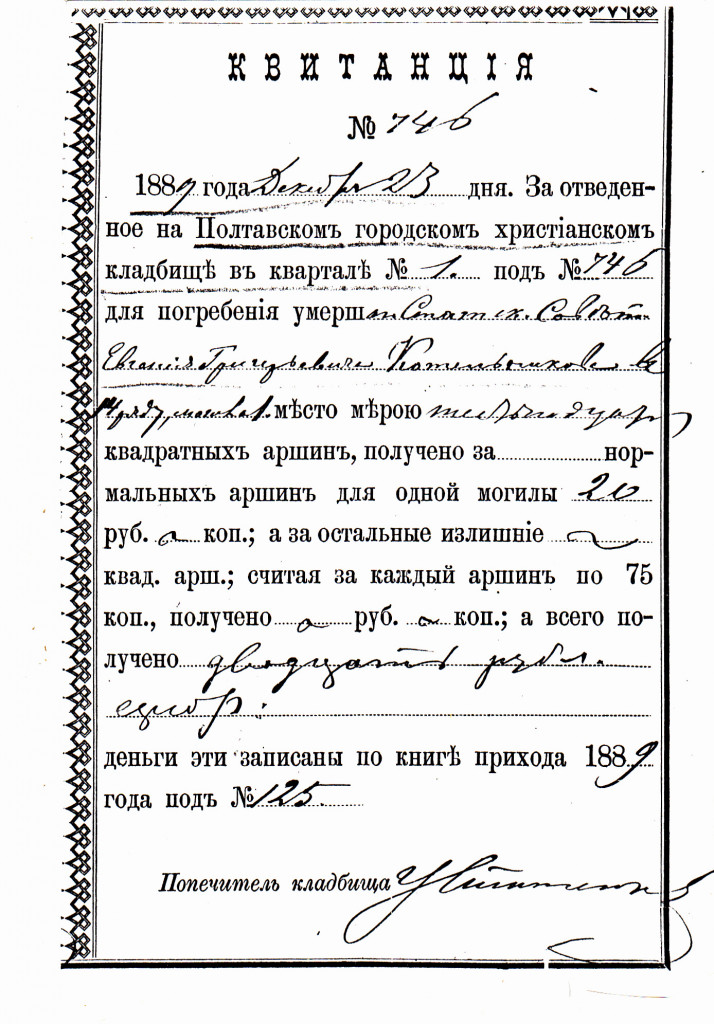 КВИТАНЦІЯ
№ 746
1889 года Декабря 23 дня. За отведен-
ное на Полтавскомъ городскомъ христіанскомъ
кладбищѣ въ кварталѣ № 1. подъ № 746
для погребенія умерш Статск. Совѣт.
Евгенія Григорьевича въ
14 ряду, мѣсто мѣрою
квадратныхъ аршинъ, получено за нор-
мальныхъ аршинъ для одной могилы 20
руб. коп.; а за остальные излишніе
квад. арш.; считая за каждый аршинъ по 75
коп., получено руб. коп.; а всего по-
лучено двадцать рубл.
сереб:
деньги эти записаны по книгѣ прихода 1889
года подъ № 125
Попечитель кладбища